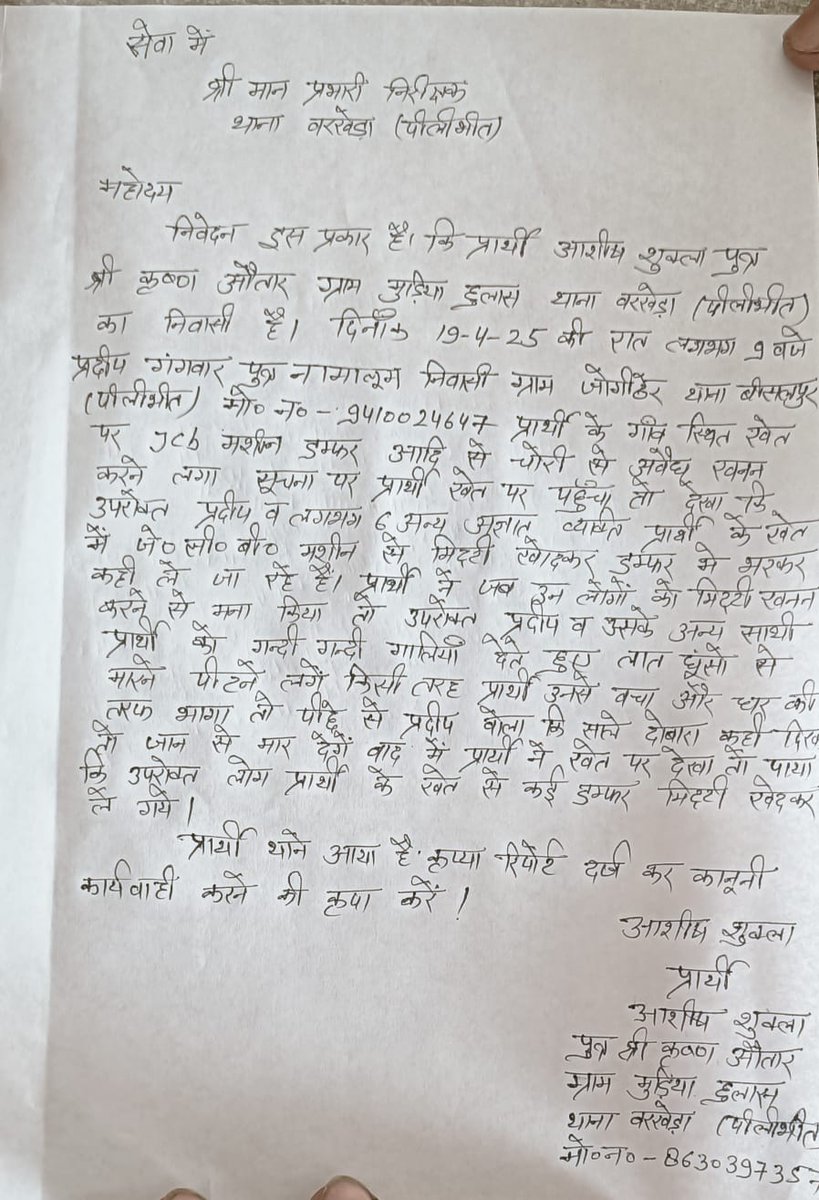 सेवा में
श्री मान प्रभारी निरीक्षक
थाना वरखेड़ा (पीलीभीत)
महोदय
निवेदन इस प्रकार है। कि प्रार्थी आशीष शुक्ला पुत्र
श्री कृष्ण औतार ग्राम मुड़िया हुलास थाना वरखेड़ा (पीलीभीत)
का निवासी है। दिनाँक 19-4-25 की रात लगभग 9 वजे
प्रदीप गंगवार पुत्र नामालूम निवासी ग्राम जोगीठेर थाना बीसलपुर
(पीलीभीत) मो० न० - 9410024647 प्रार्थी के गाँव स्थित खेत
पर Jcb मशीन डम्फर आदि से चोरी से अवैध खनन
करने लगा सूचना पर प्रार्थी खेत पर पहुँचा तो देखा कि
उपरोक्त प्रदीप व लगभग 6 अन्य अज्ञात व्यक्ति प्रार्थी के खेत
में जे० सी० बी० मशीन से मिटटी खोदकर डम्फर मे भरकर
कही ले जा रहे हैं। प्रार्थी ने जब उन लोगों को मिटटी खनन
करने से मना किया तो उपरोक्त प्रदीप व उसके अन्य साथी
प्रार्थी को गन्दी गन्दी गालियाँ देते हुए लात घूंसो से
मारने पीटने लगे किसी तरह प्रार्थी उनसे वचा और घर की
तरफ भागा तो पीछे से प्रदीप वोला कि साले दोबारा कही दिख
तो जान से मार देगें वाद में प्रार्थी ने खेत पर देखा तो पाया
कि उपरोक्त लोग प्रार्थी के खेत से कई डम्फर मिटटी खेदकर
ले गये।
प्रार्थी थाने आया है कृप्या रिपोर्ट दर्ज कर कानूनी
कार्यवाही करने की कृपा करें।
आशीष शुक्ला
प्रार्थी
आशीष शुक्ला
पुत्र श्री कृष्ण औतार
ग्राम मुड़िया हुलास
थाना वरखेड़ा (पीलीभीत
मो० न० -